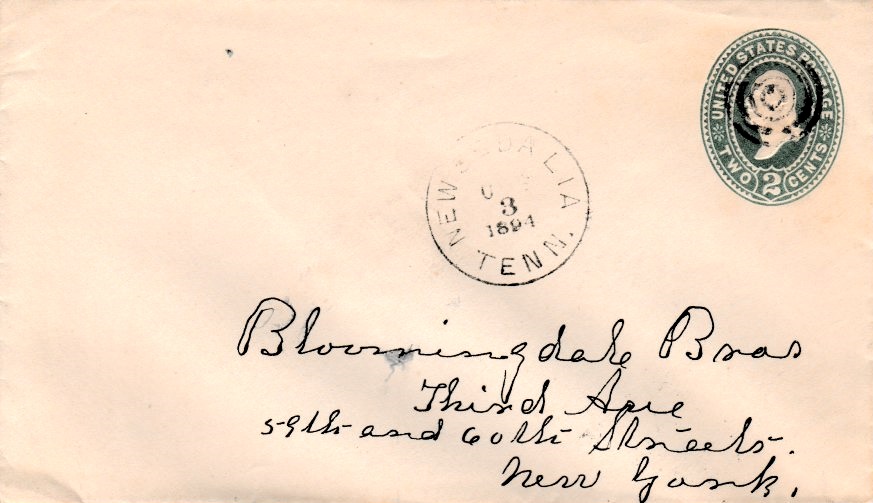 UNITED STATES POSTAGE
TWO 2 CENTS
NEW SEDALIA
3
1894
TENN.
Bloomingdale Bros
Third Ave
59th and 60th Streets.
New York.